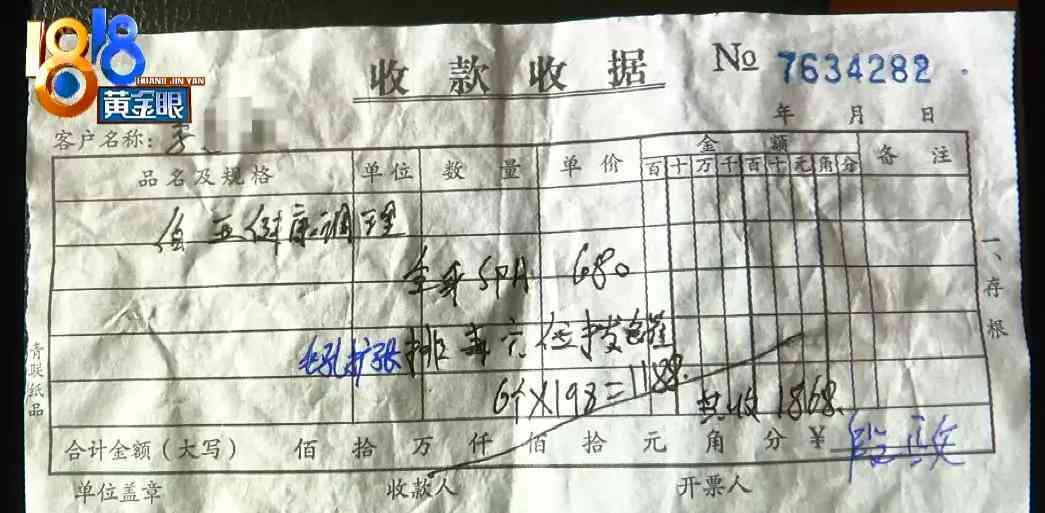 1818
HUANG JIN YAN
黄金眼
收款收据
No 7634282
年 月 日
客户名称: 李
品名及规格 单位 数量 单价 金额 备注
百 十 万 千 百 十 元 角 分
健康调理
全身SPA 680
毛孔扩张 排毒六位拔罐
6个X198=1188.
共收1868.
合计金额(大写) 佰 拾 万 仟 佰 拾 元 角 分 ¥
单位盖章 收款人 开票人
一、存根
青联纸品